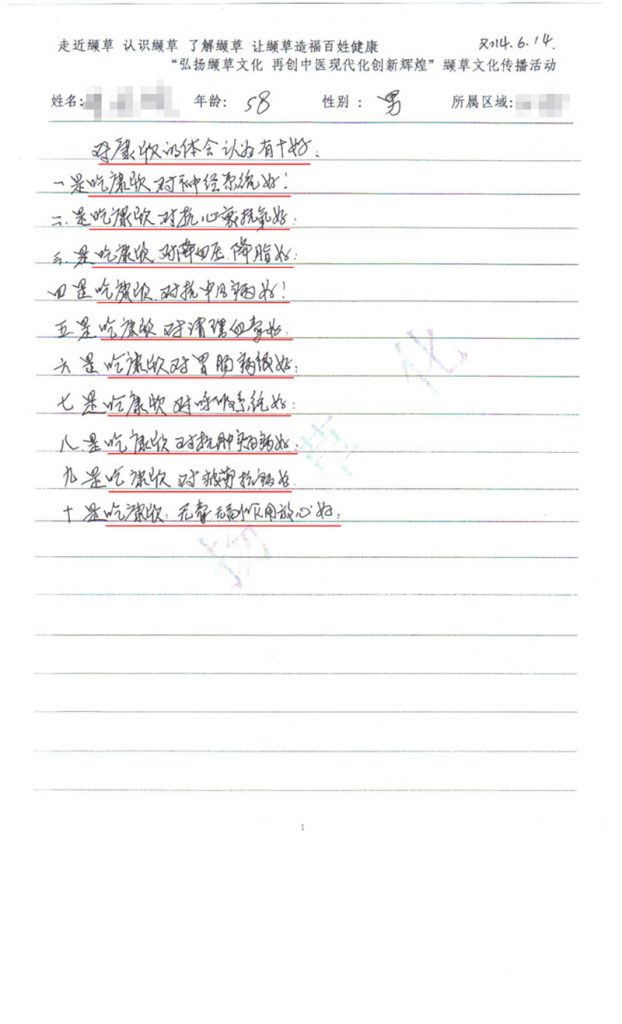 走近缬草 认识缬草 了解缬草 让缬草造福百姓健康 2014.6.14.
“弘扬缬草文化 再创中医现代化创新辉煌”缬草文化传播活动
姓名: 年龄: 58 性别: 男 所属区域:
对康欣的体会认为有十好:
一是吃康欣对神经系统好!
二是吃康欣对抗心衰抗氧好:
三是吃康欣对降血压.降脂好:
四是吃康欣.对抗中风病好!
五是吃康欣对清理血管好.
六是吃康欣对胃肠病级好:
七是吃康欣对呼吸系统好:
八是吃康欣对抗肿瘤病好:
九是吃康欣对疲劳抗病好.
十是吃康欣.无毒无副作用放心好:
扬 草 化
1